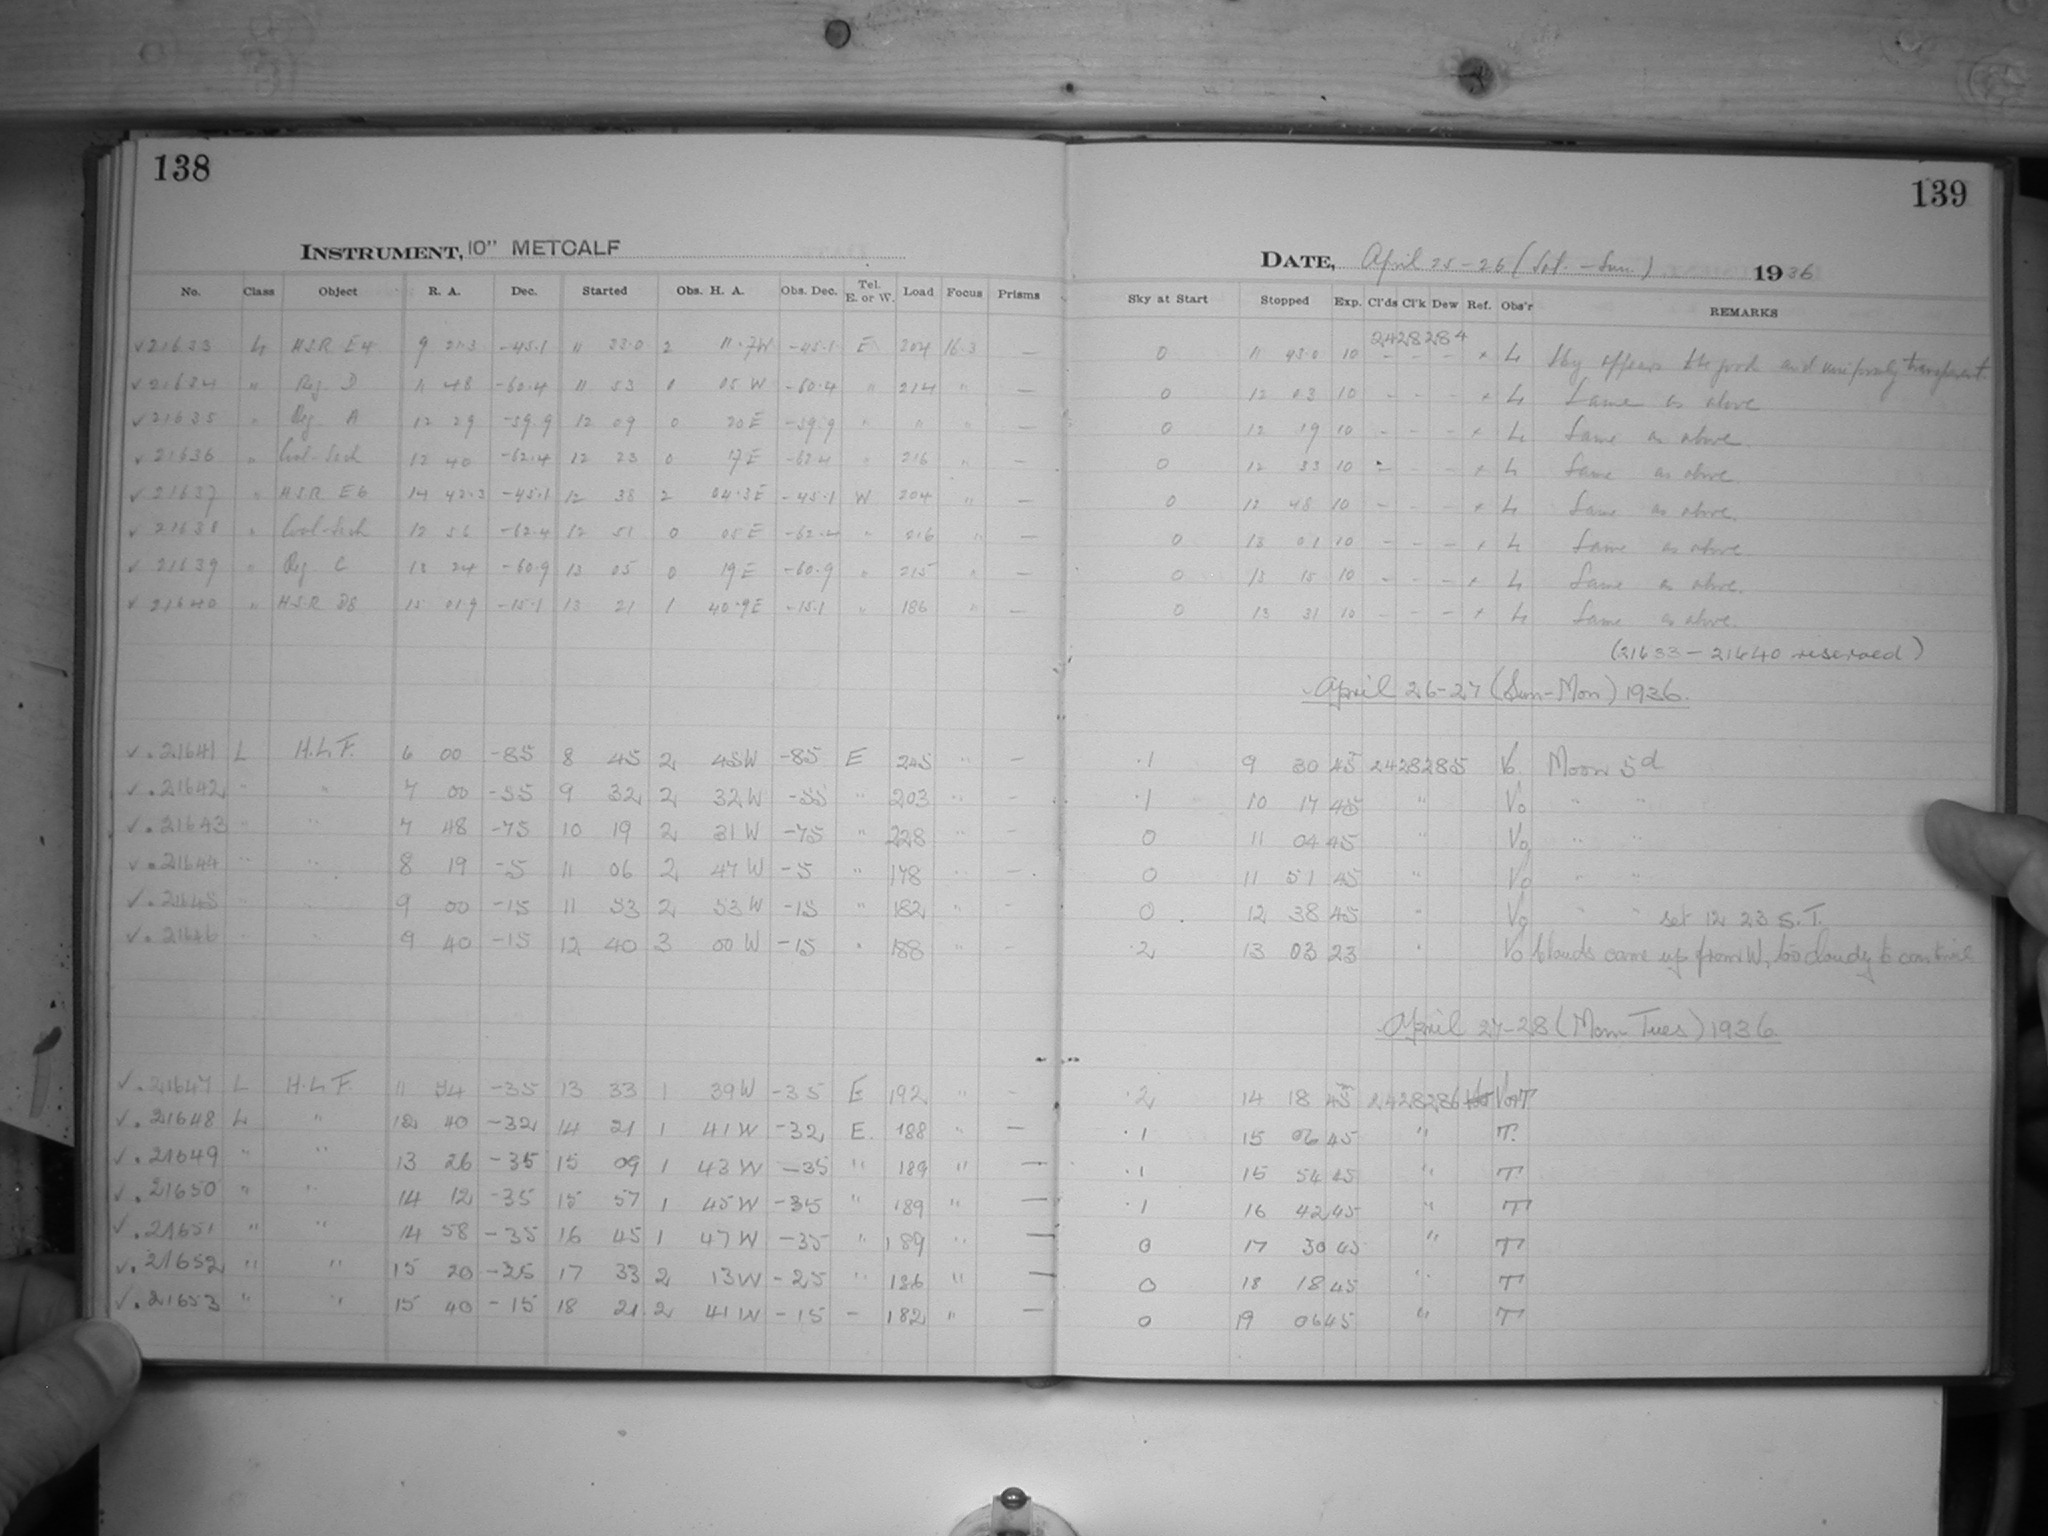 138
139
INSTRUMENT, 10" METCALF
DATE, April 25-26 (Sat. - Sun.) 1936
No. Class Object R. A. Dec. Started Obs. H. A. Obs. Dec. Tel. E. or W. Load Focus Prisms Sky at Start Stopped Exp. Cl'ds Cl'k Dew Ref. Obs'r REMARKS
2428284
√ 21633 L H.S.R. E4 9 21.3 -45.1 11 33.0 2 11.7W -45.1 E 204 16.3 — 0 11 43.0 10 - - - × L Sky appears to be good and uniformly transparent.
√ 21634 " Reg. D 11 48 -60.4 11 53 0 05 W -60.4 " 214 " — 0 12 03 10 - - - × L Same as above
√ 21635 " Reg. A 12 29 -59.9 12 09 0 20 E -59.9 " " " — 0 12 19 10 - - - × L Same as above.
√ 21636 " Coal-Sack 12 40 -62.4 12 23 0 17 E -62.4 " 216 " — 0 12 33 10 - - - × L Same as above.
√ 21637 " H.S.R. E6 14 42.3 -45.1 12 38 2 04.3E -45.1 W 204 " — 0 12 48 10 - - - × L Same as above.
√ 21638 " Coal-Sack 12 56 -62.4 12 51 0 05 E -62.4 " 216 " — 0 13 01 10 - - - × L Same as above
√ 21639 " Reg. C 13 24 -60.9 13 05 0 19 E -60.9 " 215 " — 0 13 15 10 - - - × L Same as above.
√ 21640 " H.S.R. D8 15 01.9 -15.1 13 21 1 40.9E -15.1 " 186 " — 0 13 31 10 - - - × L Same as above.
(21633 - 21640 reserved)
April 26-27 (Sun-Mon) 1936.
√. 21641 L H.L.F. 6 00 -85 8 45 2 45W -85 E 245 " - .1 9 30 45 2428285 Vo. Moon 5d
√. 21642 " " 7 00 -55 9 32 2 32W -55 " 203 " - .1 10 17 45 " Vo " "
√. 21643 " " 7 48 -75 10 19 2 31 W -75 " 228 " - 0 11 04 45 " Vo " "
√. 21644 " " 8 19 -5 11 06 2 47 W -5 " 178 " - 0 11 51 45 " Vo " "
√. 21645 " " 9 00 -15 11 53 2 53 W -15 " 182 " - 0 12 38 45 " Vo " " set 12 23 S.T.
√. 21646 " " 9 40 -15 12 40 3 00 W -15 " 188 " - .2 13 03 23 " Vo Clouds came up from W, too cloudy to continue
April 27-28 (Mon-Tues) 1936.
√. 21647 L H.L.F. 11 54 -35 13 33 1 39W -35 E 192 " - .2 14 18 45 2428286 Vo+T
√. 21648 L " 12 40 -32 14 21 1 41W -32 E. 188 " — .1 15 06 45 " T.
√. 21649 " " 13 26 -35 15 09 1 43W -35 " 189 " — .1 15 54 45 " T
√. 21650 " " 14 12 -35 15 57 1 45W -35 " 189 " — .1 16 42 45 " T
√. 21651 " " 14 58 -35 16 45 1 47W -35 " 189 " — 0 17 30 45 " T
√. 21652 " " 15 20 -25 17 33 2 13W -25 " 186 " — 0 18 18 45 " T
√. 21653 " " 15 40 -15 18 21 2 41W -15 - 182 " — 0 19 06 45 " T